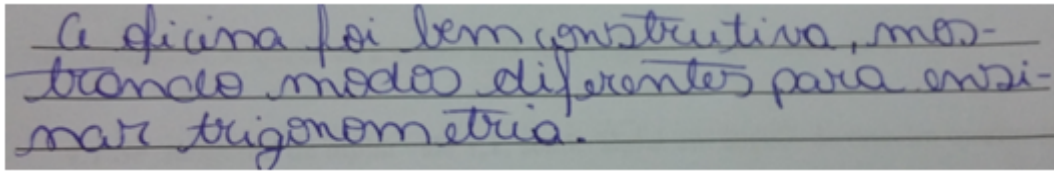 A oficina foi bem construtiva, mos-
trando modos diferentes para ensi-
nar trigonometria.